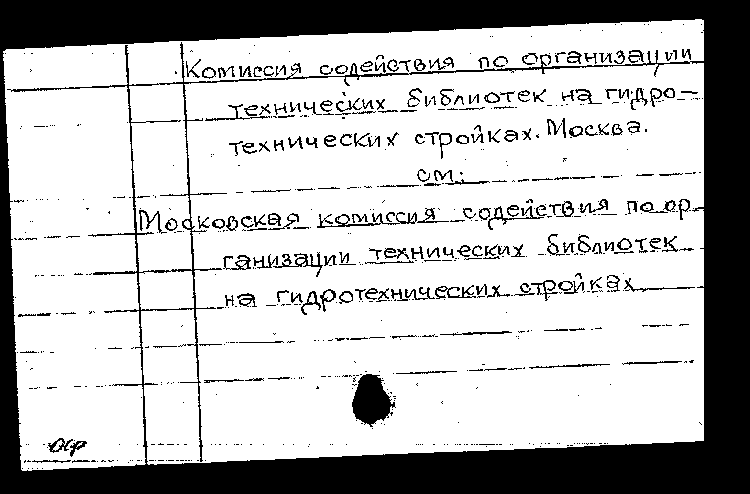 Комиссия содействия по организации
технических библиотек на гидро-
технических стройках. Москва.
см:
Московская комиссия содействия по ор-
ганизации технических библиотек
на гидротехнических стройках